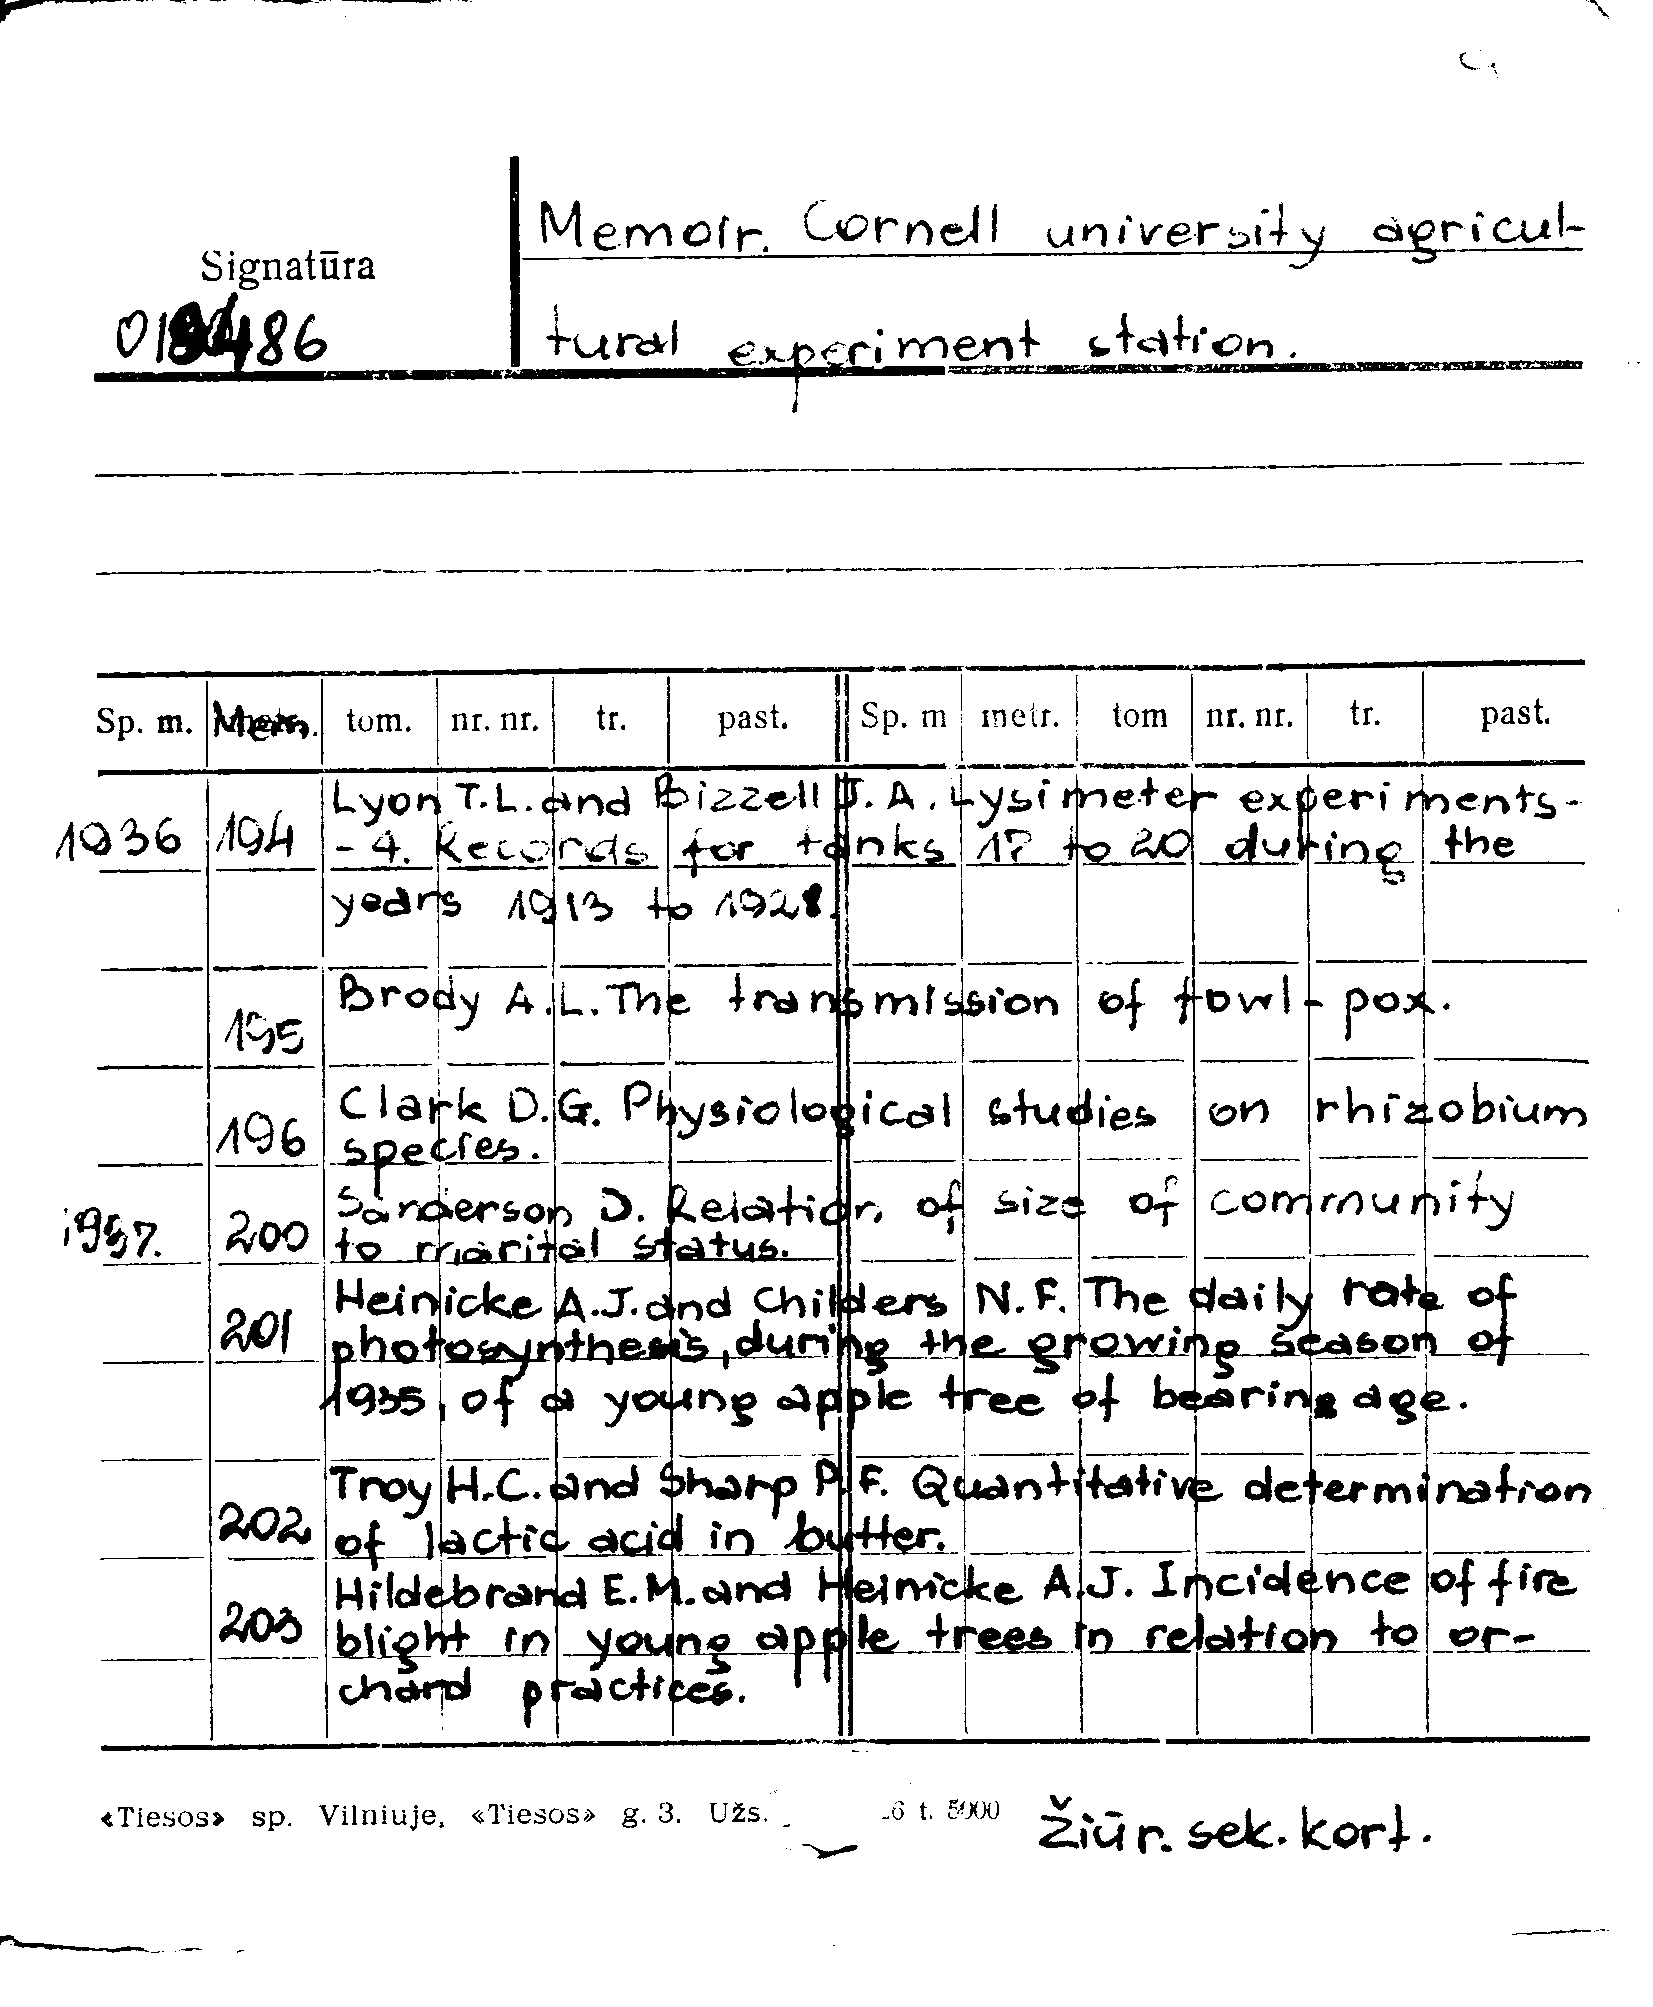 Memoir. Cornell university agricul-
Signatūra
tural experiment station.
Sp. m. Mem. tom. nr. nr. tr. past. Sp. m metr. tom nr. nr. tr. past.
Lyon T.L. and Bizzell J. A. Lysimeter experiments-
1936 194 - 4. Records for tanks 17 to 20 during the
years 1913 to 1928.
Brody A.L. The transmission of fowl-pox.
195
Clark D.G. Physiological studies on rhizobium
196 species.
Sanderson D. Relation of size of community
1937. 200 to marital status.
Heinicke A.J. and Childers N.F. The daily rate of
201 photosynthesis, during the growing season of
1935, of a young apple tree of bearing age.
Troy H.C. and Sharp P.F. Quantitative determination
202 of lactic acid in butter.
Hildebrand E.M. and Heinicke A.J. Incidence of fire
203 blight in young apple trees in relation to or-
chard practices.
«Tiesos» sp. Vilniuje, «Tiesos» g. 3. Užs. 6 t. 5000
Žiūr. sek. kort.